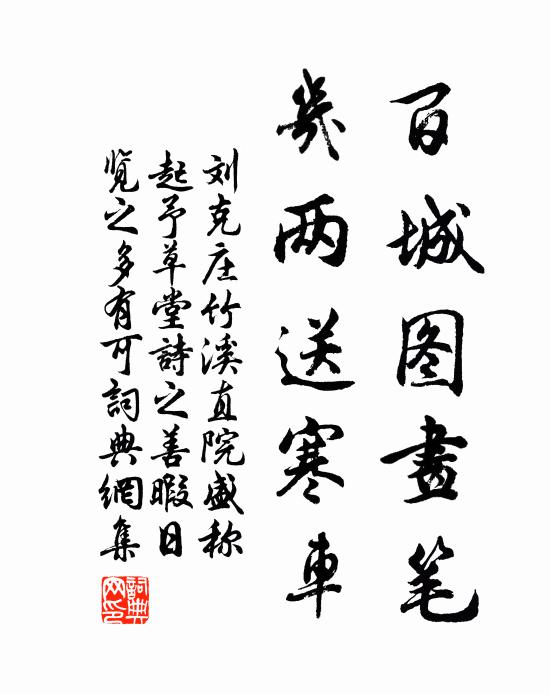 百城图畫笔
幾两送寒車
刘克庄竹溪直院盛称
起予草堂詩之善暇日
览之多有可詞典網集
詞典网印